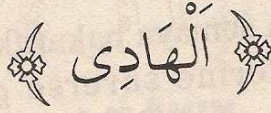 اَلْهَادِى